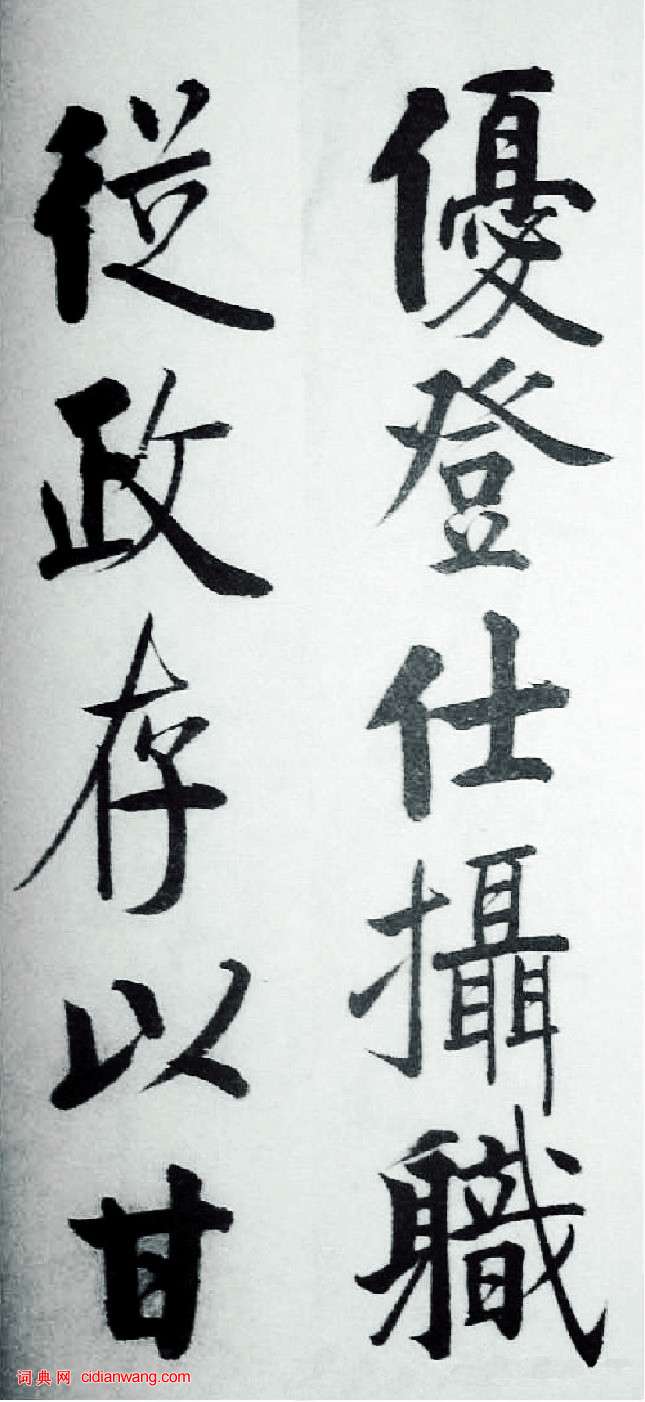 優登仕攝職
從政存以甘
词典网 cidianwang.com